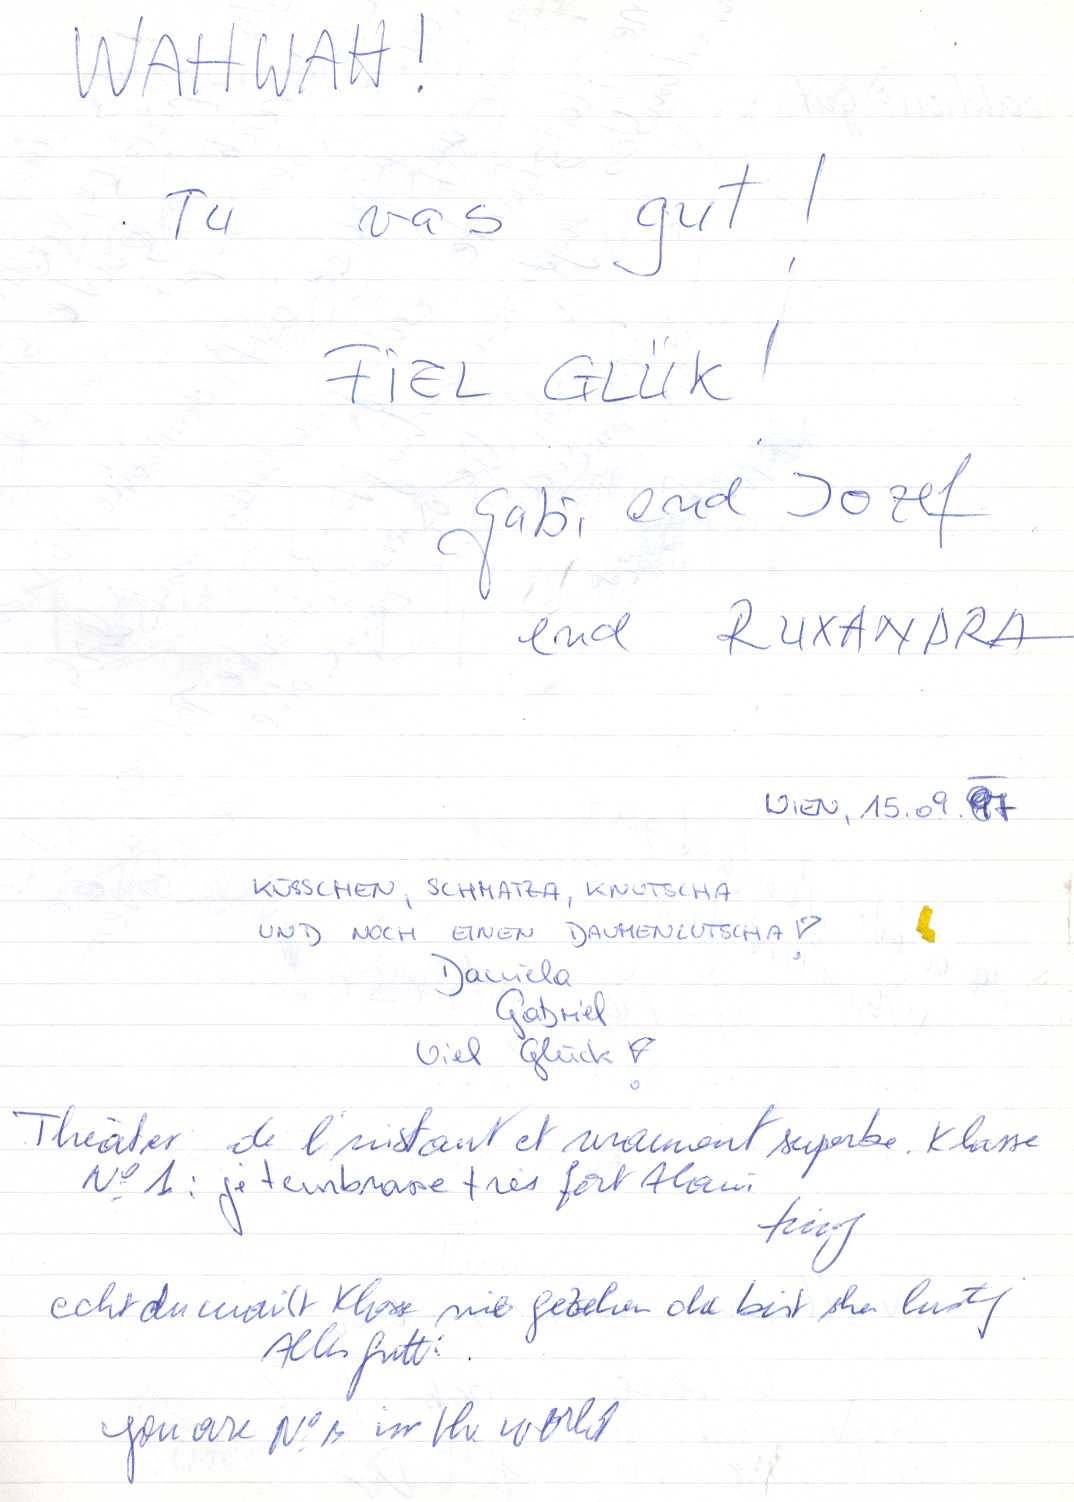 WAHWAH!
Tu vas gut!
FIEL GLÜK!
Gabi end Jozef
end RUXANDRA
WIEN, 15.09.97
KÜSSCHEN, SCHMATZA, KNUTSCHA
UND NOCH EINEN DAUMENLUTSCHA!
Daniela
Gabriel
Viel Glück!
Théâter de l'instant et vraiment superbe. Klasse
N° 1: je t'embrasse très fort Alain
echt du Klasse nie gesehen du bist lustig
Alles gutt
you are N° 1 in the world